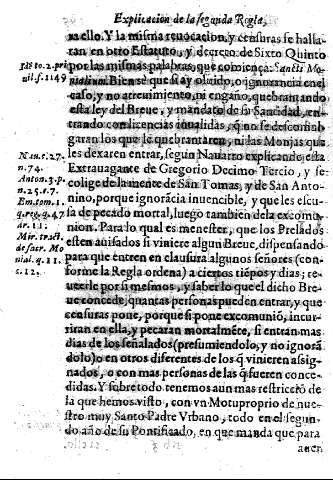 Explicacion de la segunda Regla,
ra ello. Y la misma reuocacion, y censuras se halla-
ran en otro Estatuto, y decreto de Sixto Quinto
por las mismas palabras, que comiença: Sancti Mo-
nialium. Bien se que si ay oluido, o ignorancia en el
caso, y no atreuimiento, ni engaño, quebrantando
esta ley del Breue, y mandato de su Santidad, en-
trando con licencias inualidas, q̃ no se descomul-
garan los que le quebrantaren, ni las Monjas que
les dexaren entrar, segun Nauarro explicando esta
Extrauagante de Gregorio Decimo Tercio, y se
colige de la mente de San Tomas, y de San Anto-
nino, porque ignorãcia inuencible, y que les escu-
sa de pecado mortal, luego tambien dela excomu-
nion. Para lo qual es menester, que los Prelados
estẽ auisados si viniere algun Breue, dispensando
para que entren en clausura algunos señores (con-
forme la Regla ordena) a ciertos tiẽpos y dias; re-
uerle por si mesmos, y saber lo que el dicho Bre-
ue concede, quantas personas pueden entrar, y que
censuras pone, porque si pone excomuniõ, incur-
riran en ella, y pecaran mortalmẽte, si entran mas
dias de los señalados (presumiendolo, y no ignorã
dolo) o en otros diferentes de los q̃ vinieren assig-
nados, o con mas personas de las q̃ fueren conce-
didas. Y sobre todo tenemos aun mas restricciõ de
la que hemos visto, con vn Motuproprio de nue-
stro muy Santo Padre Vrbano, todo en el segun-
do año de su Pontificado, en que manda que para
auer
to. 2. pri
nil. f. 1149
Nau. c. 27.
n. 74.
Anton. 3. p.
n. 25. c. 7.
Em. tom. 1.
q. reg. q. 47
ar. 11;
Mir. tract.
de sacr. Mo
nial. q. 11.
c. 12.